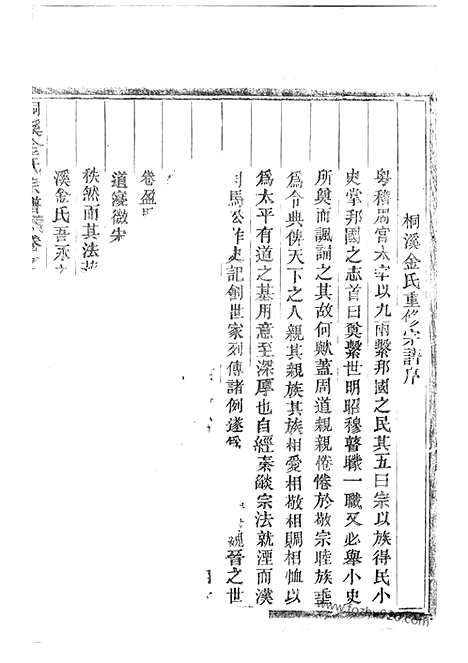 桐溪金氏重修宗譜序
粤稽周官太宰以九兩繫邦國之民其五曰宗以族得民小
史掌邦國之志首曰奠繫世明昭穆瞽矇一職又必舉小史
所奠而諷誦之其故何歟蓋周道親親惓惓於敬宗睦族垂
為令典俾天下之人親其親族其族相愛相敬相賙相恤以
為太平有道之基用意至深厚也自經秦燄宗法就湮而漢
司馬公作史記創世家列傳諸例遂為
魏晉之世
卷盈
道寖微宋
秩然而其法
溪金氏吾永
桐溪金氏宗譜 卷
www.fozhu920.com